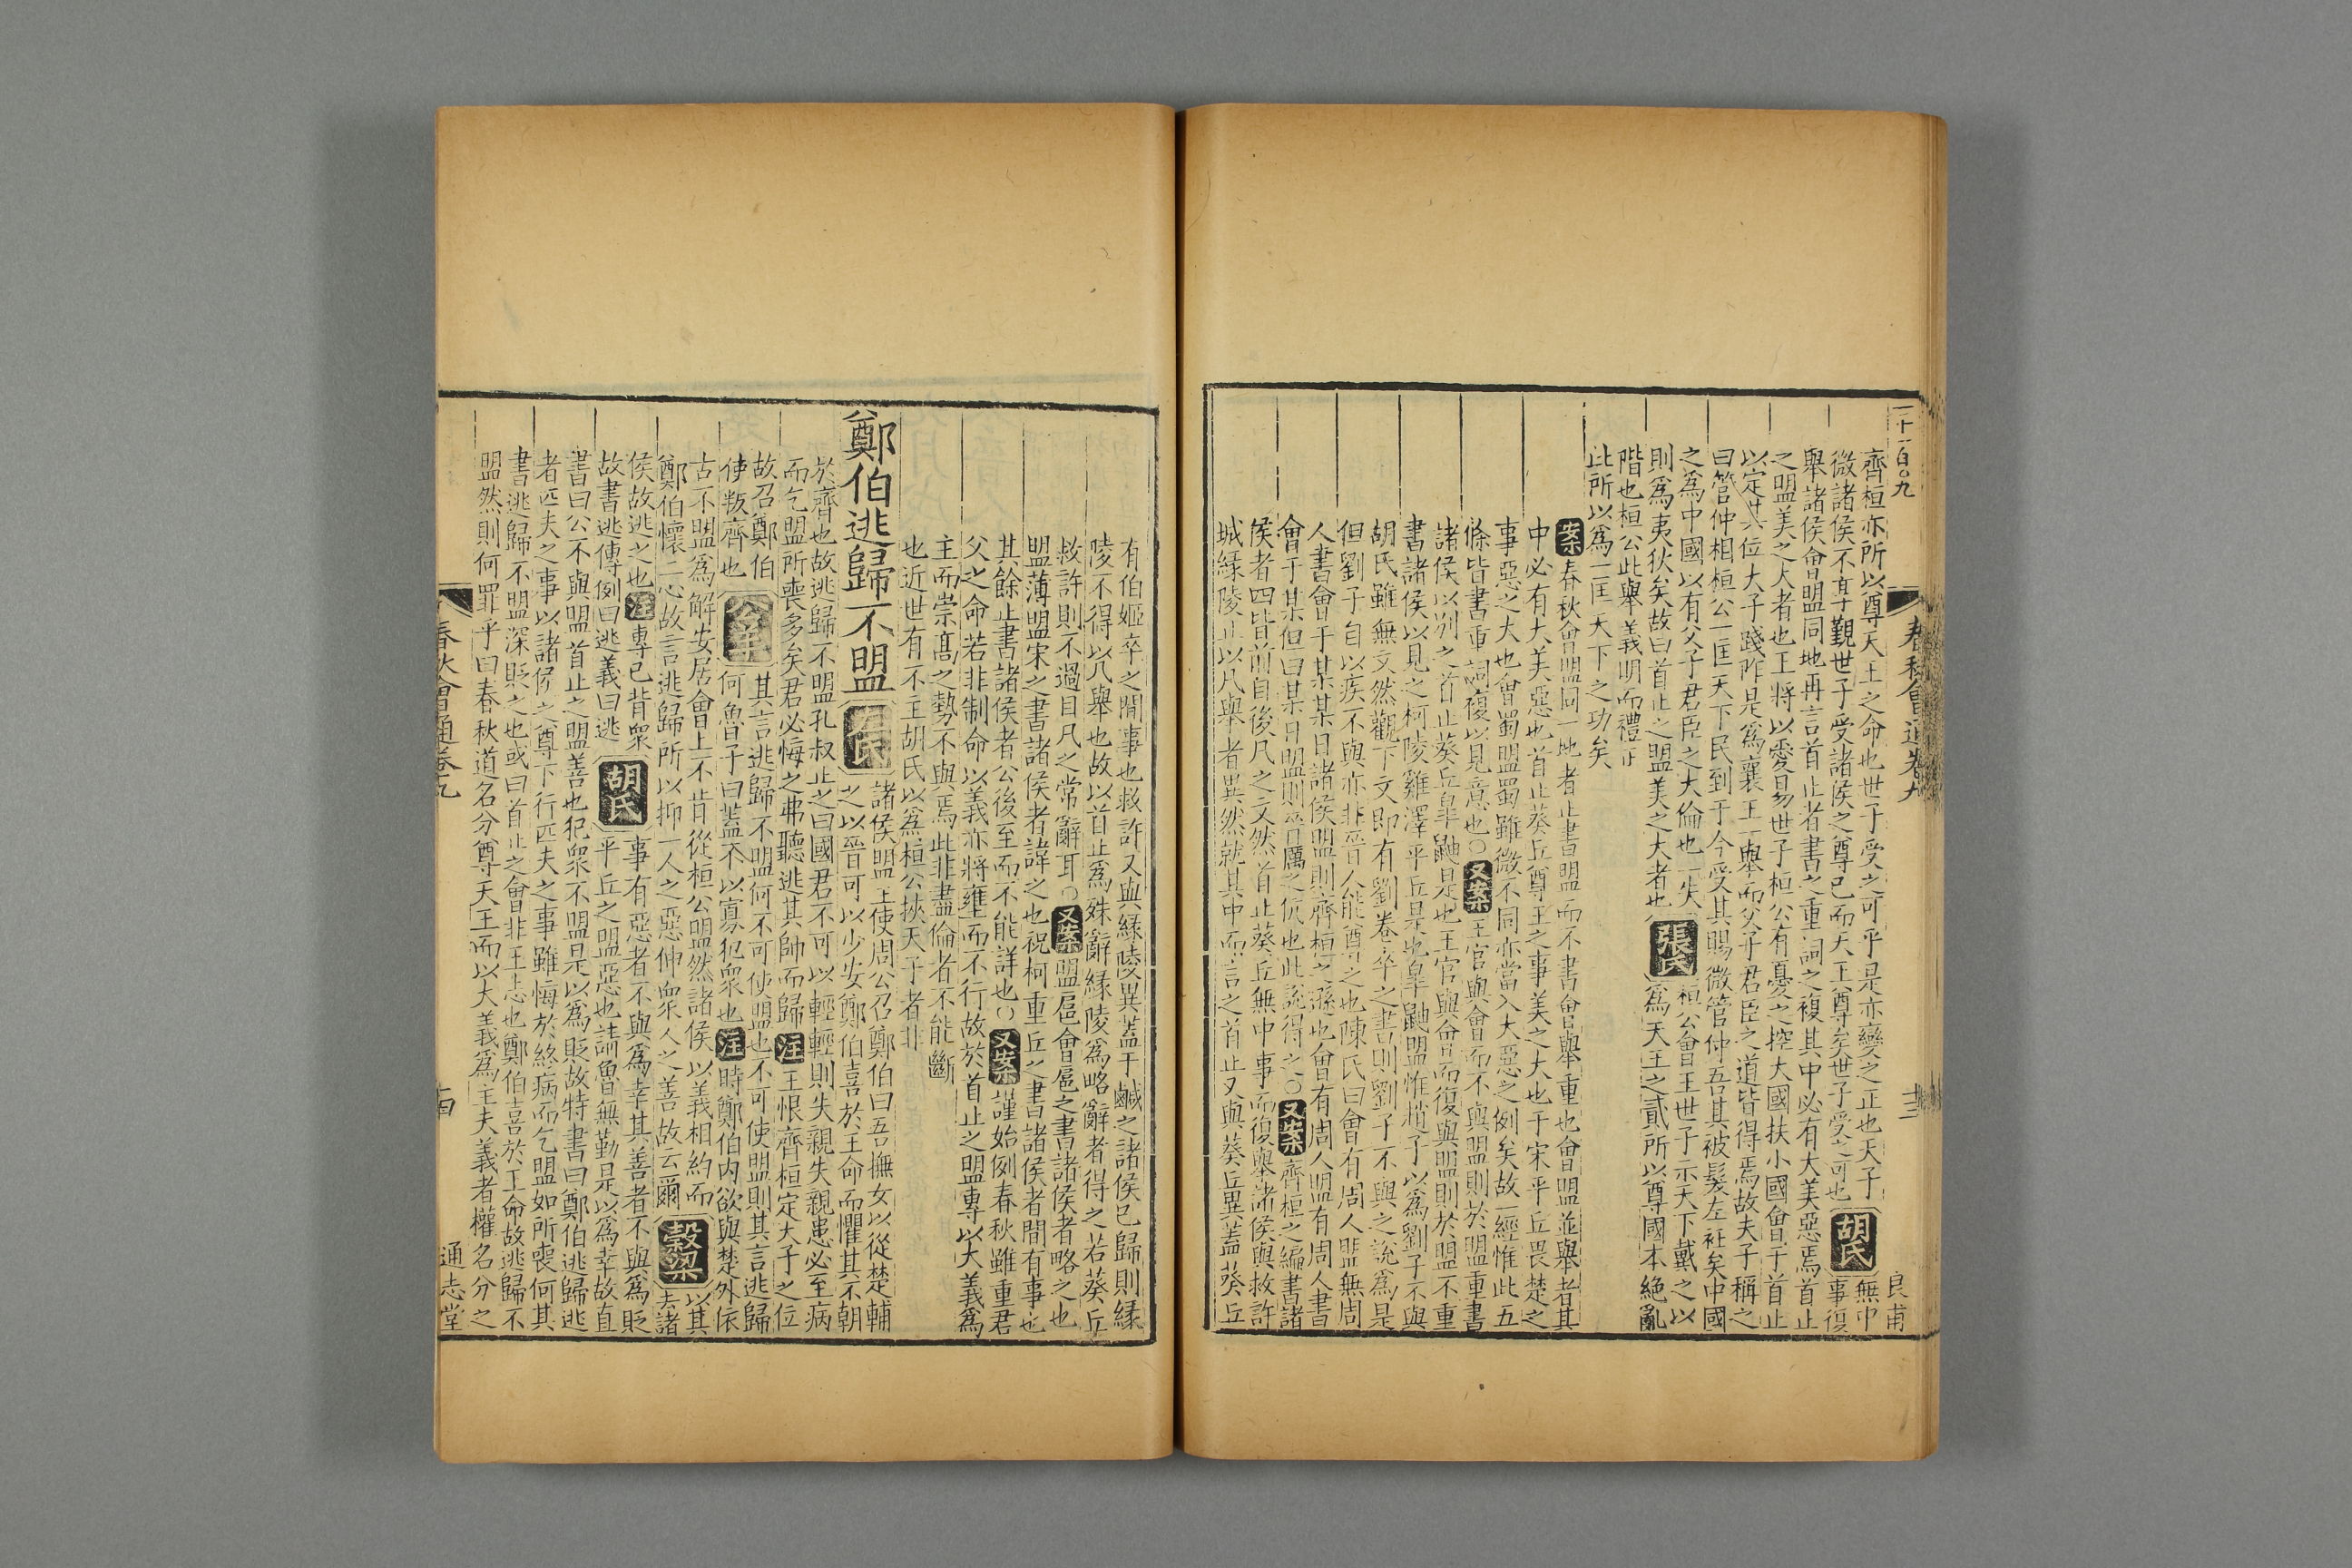 二十一百〇九 春秋會通卷九 十三 良甫
齊桓亦所以尊天王之命也世子受之可乎是亦變之正也天子
微諸侯不享覲世子受諸侯之尊已而天王尊矣世子受之可也
胡氏
無中
事復
舉諸侯會盟同地再言首止者書之重詞之複其中必有大美惡焉首止
之盟美之大者也王將以愛易世子桓公有憂之控大國扶小國會于首止
以定其位大子踐阼是爲襄王一舉而父子君臣之道皆得焉故夫子稱之
曰管仲相桓公一匡天下民到于今受其賜微管仲吾其被髮左衽矣中國
之爲中國以有父子君臣之大倫也一失
則爲夷狄矣故曰首止之盟美之大者也
張氏
桓公會王世子示天下戴之以
爲天王之貳所以尊國本絶亂
階也桓公此舉義明而禮正
此所以爲一匡天下之功矣
案春秋會盟同一地者止書盟而不書會舉重也會盟並舉者其
中必有大美惡也首止葵丘尊王之事美之大也于宋平丘畏楚之
事惡之大也會蜀盟蜀雖微不同亦當入大惡之例矣故一經惟此五
條皆書重詞複以見意也〇又案王官與會而不與盟則於盟重書
諸侯以別之首止葵丘皐鼬是也王官與會而復與盟則於盟不重
書諸侯以見之柯陵雞澤平丘是也皐鼬盟惟趙子以爲劉子不與
胡氏雖無文然觀下文即有劉卷卒之書則劉子不與之説爲是
但劉子自以疾不與亦非晉人能酋之也陳氏曰會有周人盟無周
人書會于某某日諸侯盟則齊桓之遜也會有周人盟有周人書
會于某但曰某日盟則晉厲之伉也此説得之〇又案齊桓之編書諸
侯者四皆前目後凡之文然首止葵丘無中事而復舉諸侯與救許
城緣陵止以凡舉者異然就其中而言之首止又與葵丘異蓋葵丘
有伯姬卒之間事也救許又與緣陵異蓋于鹹之諸侯已歸則緣
陵不得以凡舉也故以首止爲殊辭緣陵爲略辭者得之若葵丘
救許則不過目凡之常辭耳〇又案盟扈會扈之書諸侯者略之也
盟薄盟宋之書諸侯者諱之也祝柯重丘之書諸侯者間有事也
其餘止書諸侯者公後至而不能詳也〇又案謹始例春秋雖重君
父之命若非制命以義亦將壅而不行故於首止之盟專以大義爲
主而崇高之勢不與焉此非盡倫者不能斷
也近世有不王胡氏以爲桓公挾天子者非
鄭伯逃歸不盟
左氏
諸侯盟王使周公召鄭伯曰吾撫女以從楚輔
之以晉可以少安鄭伯喜於王命而懼其不朝
於齊也故逃歸不盟孔叔止之曰國君不可以輕輕則失親失親患必至病
而乞盟所喪多矣君必悔之弗聽逃其帥而歸注王恨齊桓定大子之位
故召鄭伯
使叛齊也
公羊
其言逃歸不盟何不可使盟也不可使盟則其言逃歸
何魯子曰蓋不以寡犯衆也注時鄭伯内欲與楚外依
古不盟爲解安居會上不肯從桓公盟然諸侯以義相約而
鄭伯懷二心故言逃歸所以抑一人之惡伸衆人之善故云爾
穀梁
以其
去諸
侯故逃之也注專已背衆
故書逃傳例曰逃義曰逃
胡氏
事有惡者不與爲幸其善者不與爲貶
平丘之盟惡也請魯無勤是以爲幸故直
書曰公不與盟首止之盟善也犯衆不盟是以爲貶故特書曰鄭伯逃歸逃
者匹夫之事以諸侯之尊下行匹夫之事雖悔於終病而乞盟如所喪何其
書逃歸不盟深貶之也或曰首止之會非王志也鄭伯喜於王命故逃歸不
盟然則何罪乎曰春秋道名分尊天王而以大義爲主夫義者權名分之
春秋會通卷九 十四 通志堂